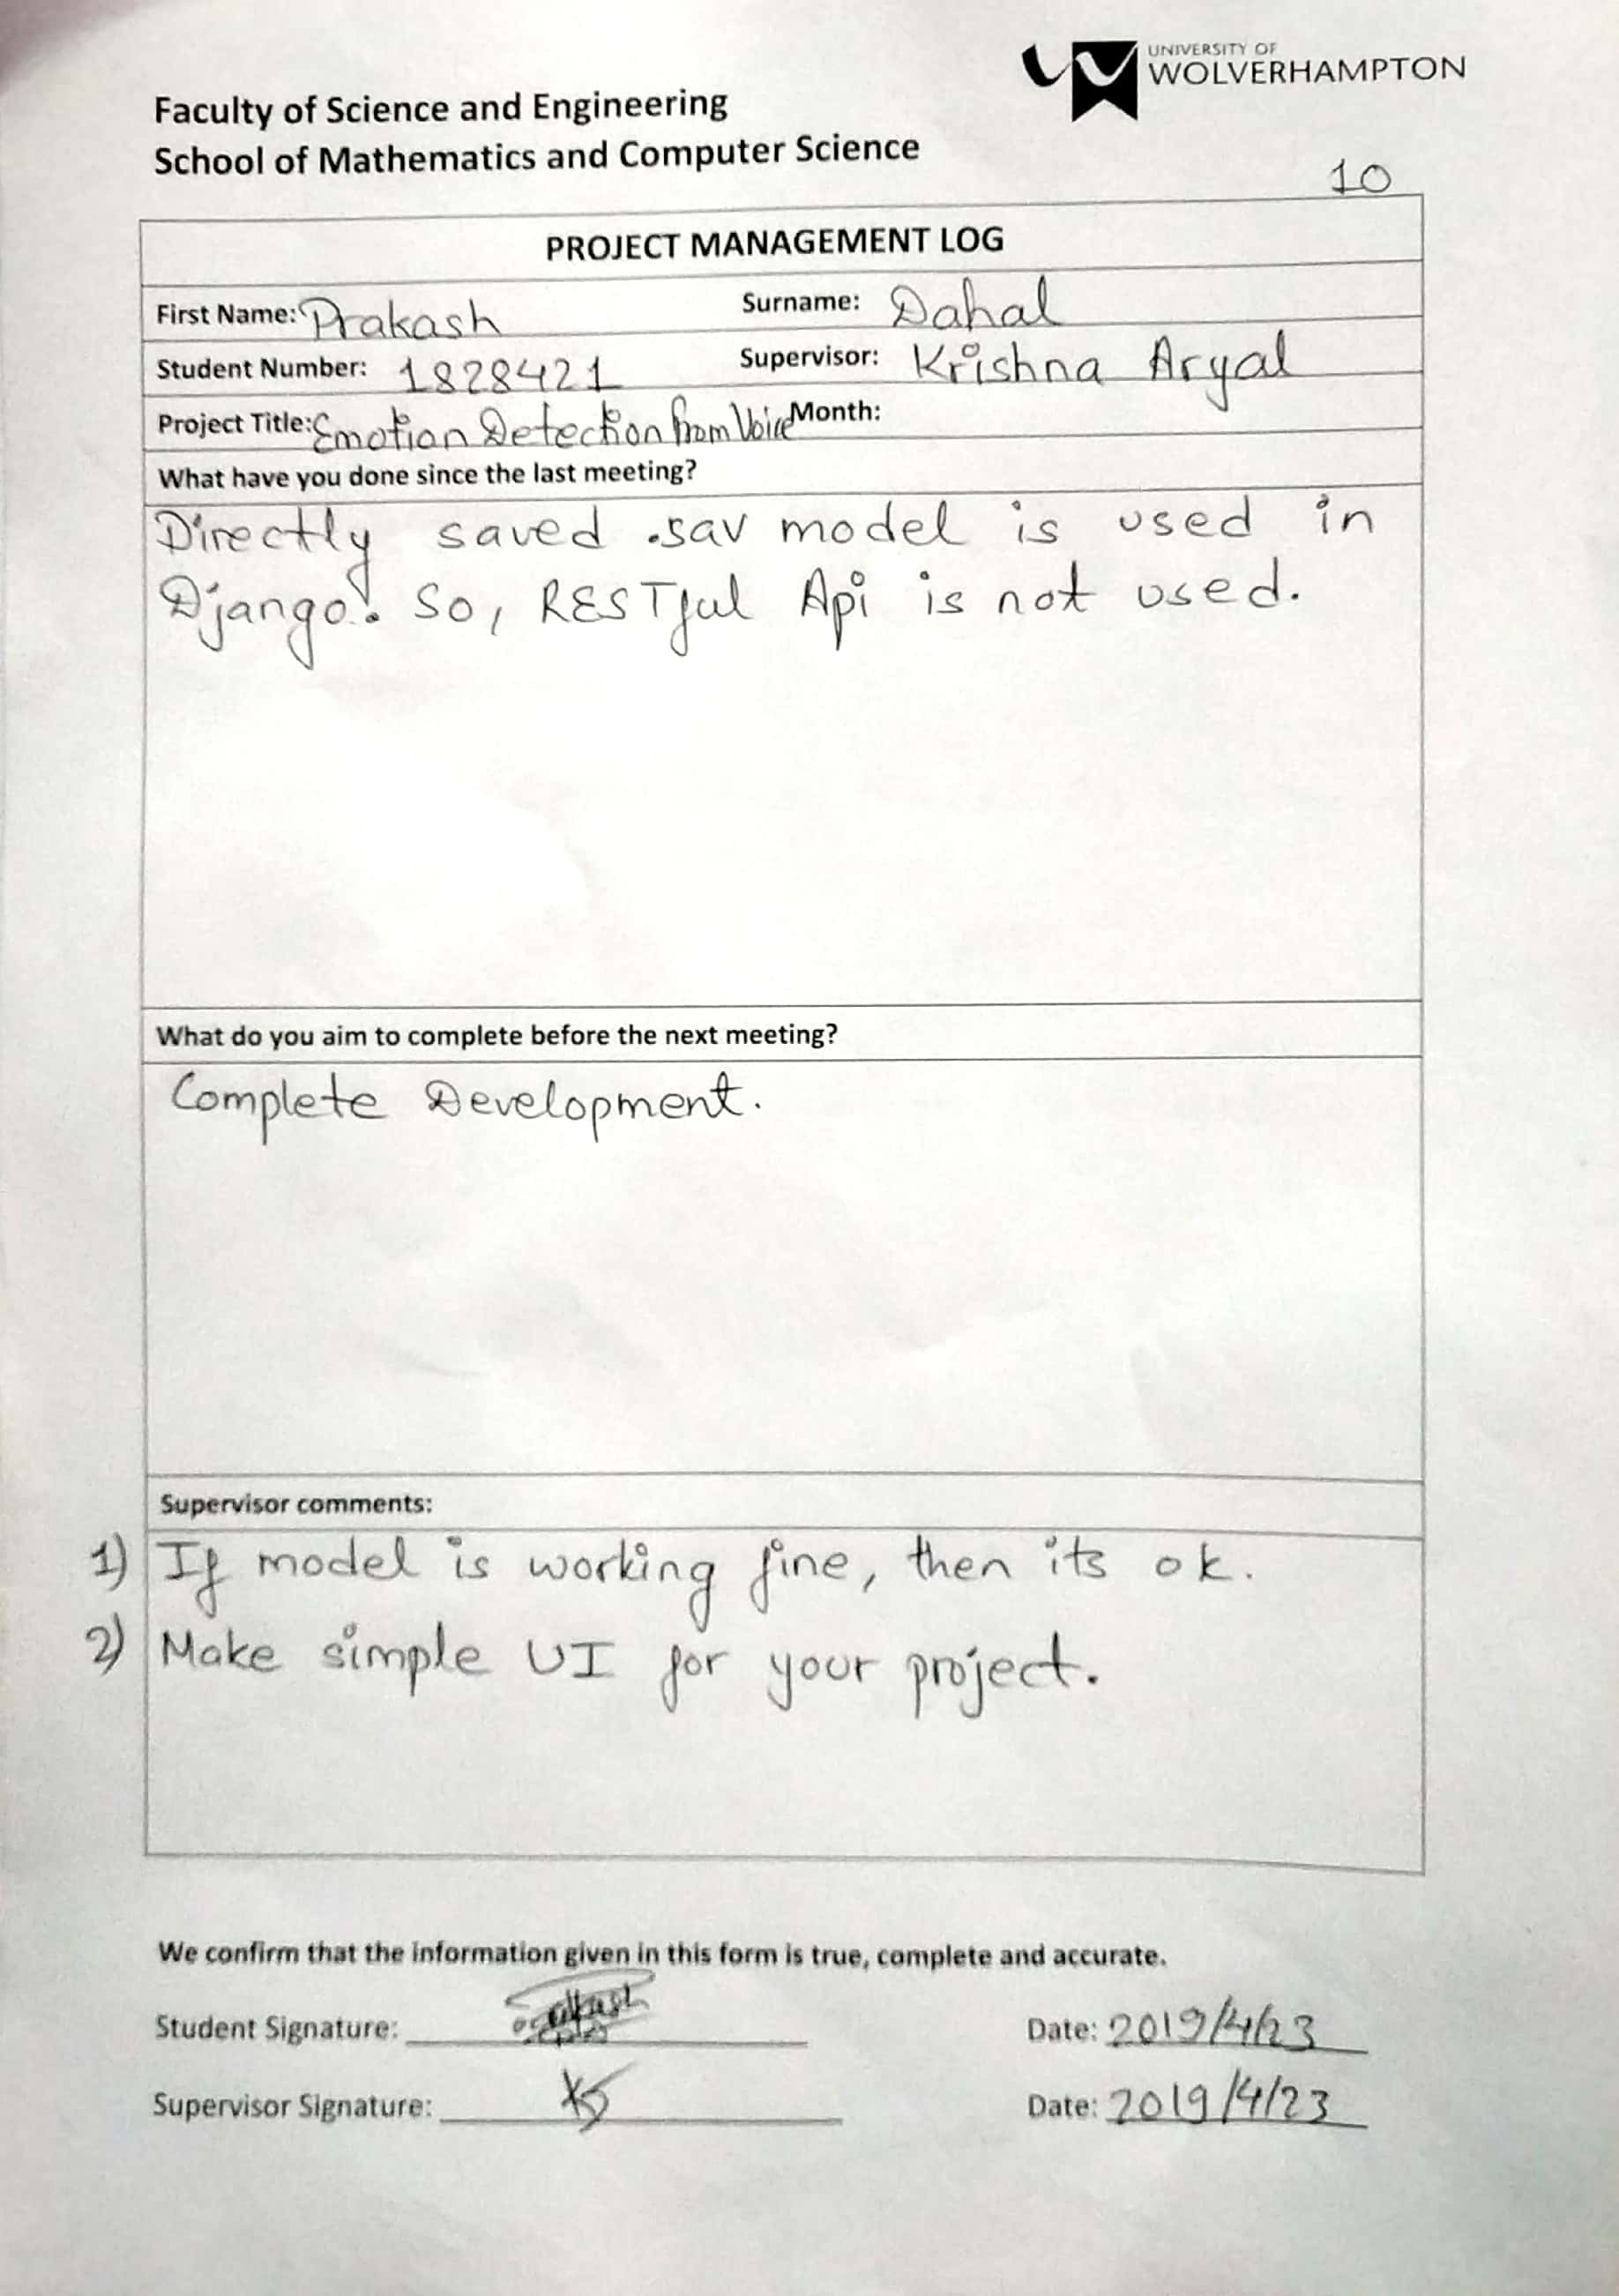 UNIVERSITY OF
WOLVERHAMPTON
Faculty of Science and Engineering
School of Mathematics and Computer Science
10
PROJECT MANAGEMENT LOG
First Name: Prakash Surname: Dahal
Student Number: 1828421 Supervisor: Krishna Aryal
Project Title: Emotion Detection from Voice Month:
What have you done since the last meeting?
Directly saved .sav model is used in
Django. So, RESTful Api is not used.
What do you aim to complete before the next meeting?
Complete Development.
Supervisor comments:
1) If model is working fine, then its ok.
2) Make simple UI for your project.
We confirm that the information given in this form is true, complete and accurate.
Student Signature: Date: 2019/4/23
Supervisor Signature: Date: 2019/4/23